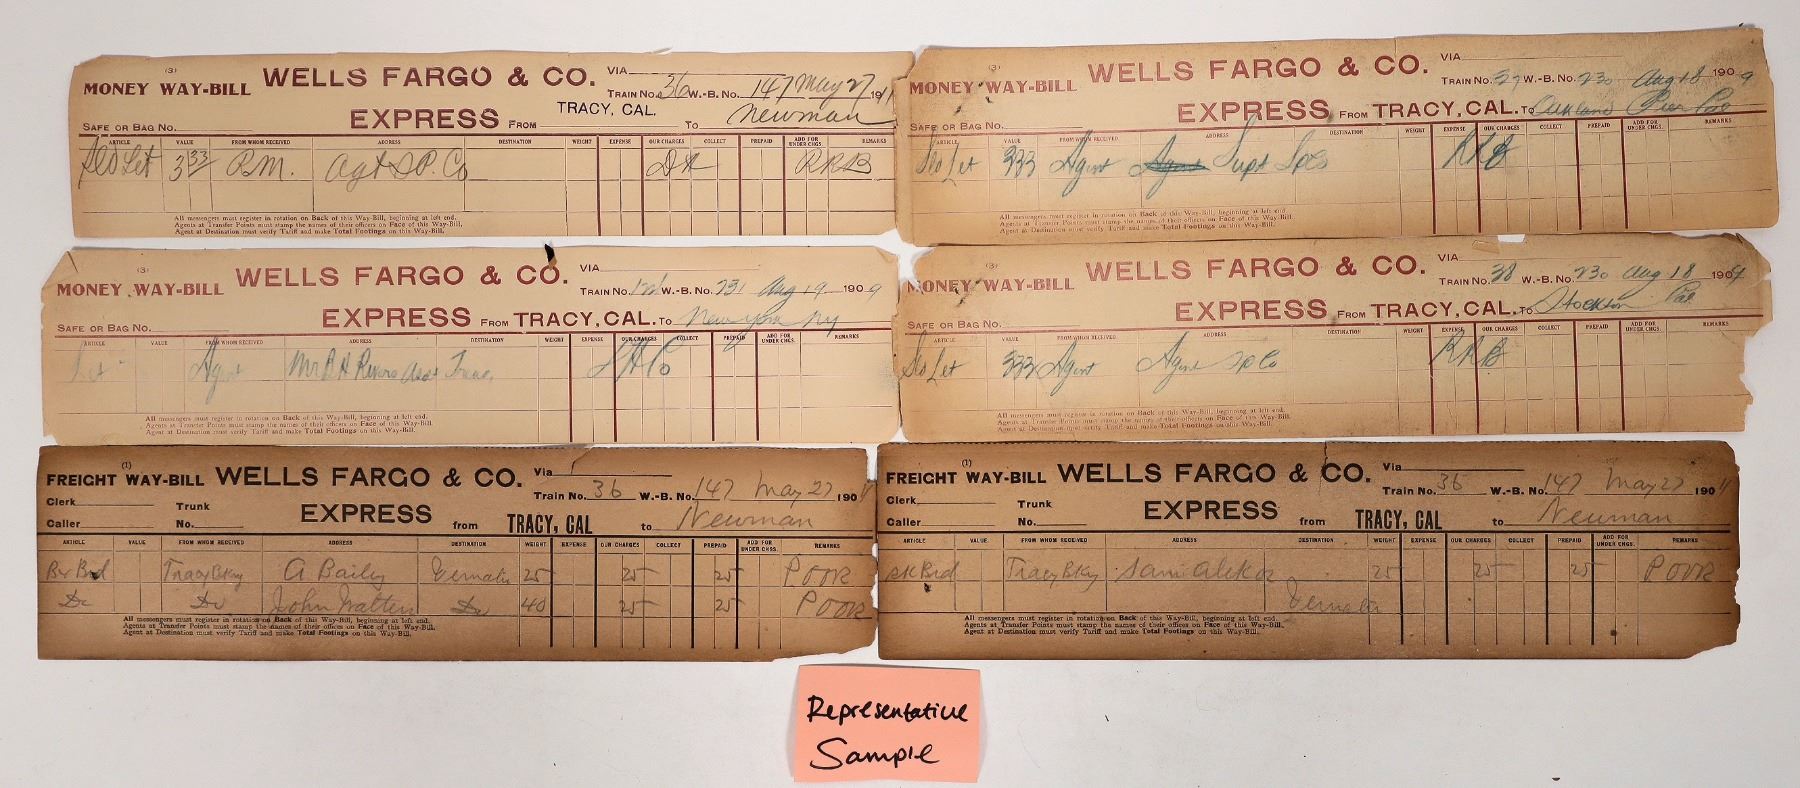 (3)
MONEY WAY-BILL WELLS FARGO & CO. VIA
TRAIN No. 36 W.-B. No. 147 May 27 1911
EXPRESS FROM TRACY, CAL. To Newman
SAFE OR BAG No.
ARTICLE VALUE FROM WHOM RECEIVED ADDRESS DESTINATION WEIGHT EXPENSE OUR CHARGES COLLECT PREPAID ADD FOR UNDER CHGS. REMARKS
Let 333 P.M. Agt S.P. Co DH RRB
All messengers must register in rotation on Back of this Way-Bill, beginning at left end.
Agents at Transfer Points must stamp the names of their offices on Face of this Way-Bill,
Agent at Destination must verify Tariff and make Total Footings on this Way-Bill.
(3)
MONEY WAY-BILL WELLS FARGO & CO. VIA
TRAIN No. 27 W.-B. No. 230 Aug 18 1909
EXPRESS FROM TRACY, CAL. To Oakland Pier Cal
SAFE OR BAG No.
ARTICLE VALUE FROM WHOM RECEIVED ADDRESS DESTINATION WEIGHT EXPENSE OUR CHARGES COLLECT PREPAID ADD FOR UNDER CHGS. REMARKS
Let 333 Agent Agent Supt RRB
All messengers must register in rotation on Back of this Way-Bill, beginning at left end.
Agents at Transfer Points must stamp the names of their offices on Face of this Way-Bill.
Agent at Destination must verify Tariff and make Total Footings on this Way-Bill.
(3)
MONEY WAY-BILL WELLS FARGO & CO. VIA
TRAIN No. W.-B. No. 231 Aug 19 1909
EXPRESS FROM TRACY, CAL. To New York NY
SAFE OR BAG No.
ARTICLE VALUE FROM WHOM RECEIVED ADDRESS DESTINATION WEIGHT EXPENSE OUR CHARGES COLLECT PREPAID ADD FOR UNDER CHGS. REMARKS
Let Agent Mr Asst Treas
All messengers must register in rotation on Back of this Way-Bill, beginning at left end.
Agents at Transfer Points must stamp the names of their offices on Face of this Way-Bill,
Agent at Destination must verify Tariff and make Total Footings on this Way-Bill.
(3)
MONEY WAY-BILL WELLS FARGO & CO. VIA
TRAIN No. 38 W.-B. No. 230 Aug 18 1909
EXPRESS FROM TRACY, CAL. To Stockton Cal
SAFE OR BAG No.
ARTICLE VALUE FROM WHOM RECEIVED ADDRESS DESTINATION WEIGHT EXPENSE OUR CHARGES COLLECT PREPAID ADD FOR UNDER CHGS. REMARKS
Let 333 Agent Agent SP Co RRB
All messengers must register in rotation on Back of this Way-Bill, beginning at left end.
Agents at Transfer Points must stamp the names of their offices on Face of this Way-Bill.
Agent at Destination must verify Tariff and make Total Footings on this Way-Bill.
(1)
FREIGHT WAY-BILL WELLS FARGO & CO. Via
Train No. 36 W.-B. No. 147 May 27 1901
Clerk Trunk
Caller No. EXPRESS from TRACY, CAL to Newman
ARTICLE VALUE FROM WHOM RECEIVED ADDRESS DESTINATION WEIGHT EXPENSE OUR CHARGES COLLECT PREPAID ADD FOR UNDER CHGS. REMARKS
Bx Brd Tracy Bky A Baily 25 25 25 POOR
Do Do John Do 40 25 25 POOR
All messengers must register in rotation on Back of this Way-Bill, beginning at left end.
Agents at Transfer Points must stamp the names of their offices on Face of this Way-Bill.
Agent at Destination must verify Tariff and make Total Footings on this Way-Bill.
(1)
FREIGHT WAY-BILL WELLS FARGO & CO. Via
Train No. 36 W.-B. No. 147 May 27 19011
Clerk Trunk
Caller No. EXPRESS from TRACY, CAL to Newman
ARTICLE VALUE FROM WHOM RECEIVED ADDRESS DESTINATION WEIGHT EXPENSE OUR CHARGES COLLECT PREPAID ADD FOR UNDER CHGS. REMARKS
Sk Brd Tracy Bky Sam 25 25 25 POOR
All messengers must register in rotation on Back of this Way-Bill, beginning at left end.
Agents at Transfer Points must stamp the names of their offices on Face of this Way-Bill.
Agent at Destination must verify Tariff and make Total Footings on this Way-Bill.
Representative
Sample